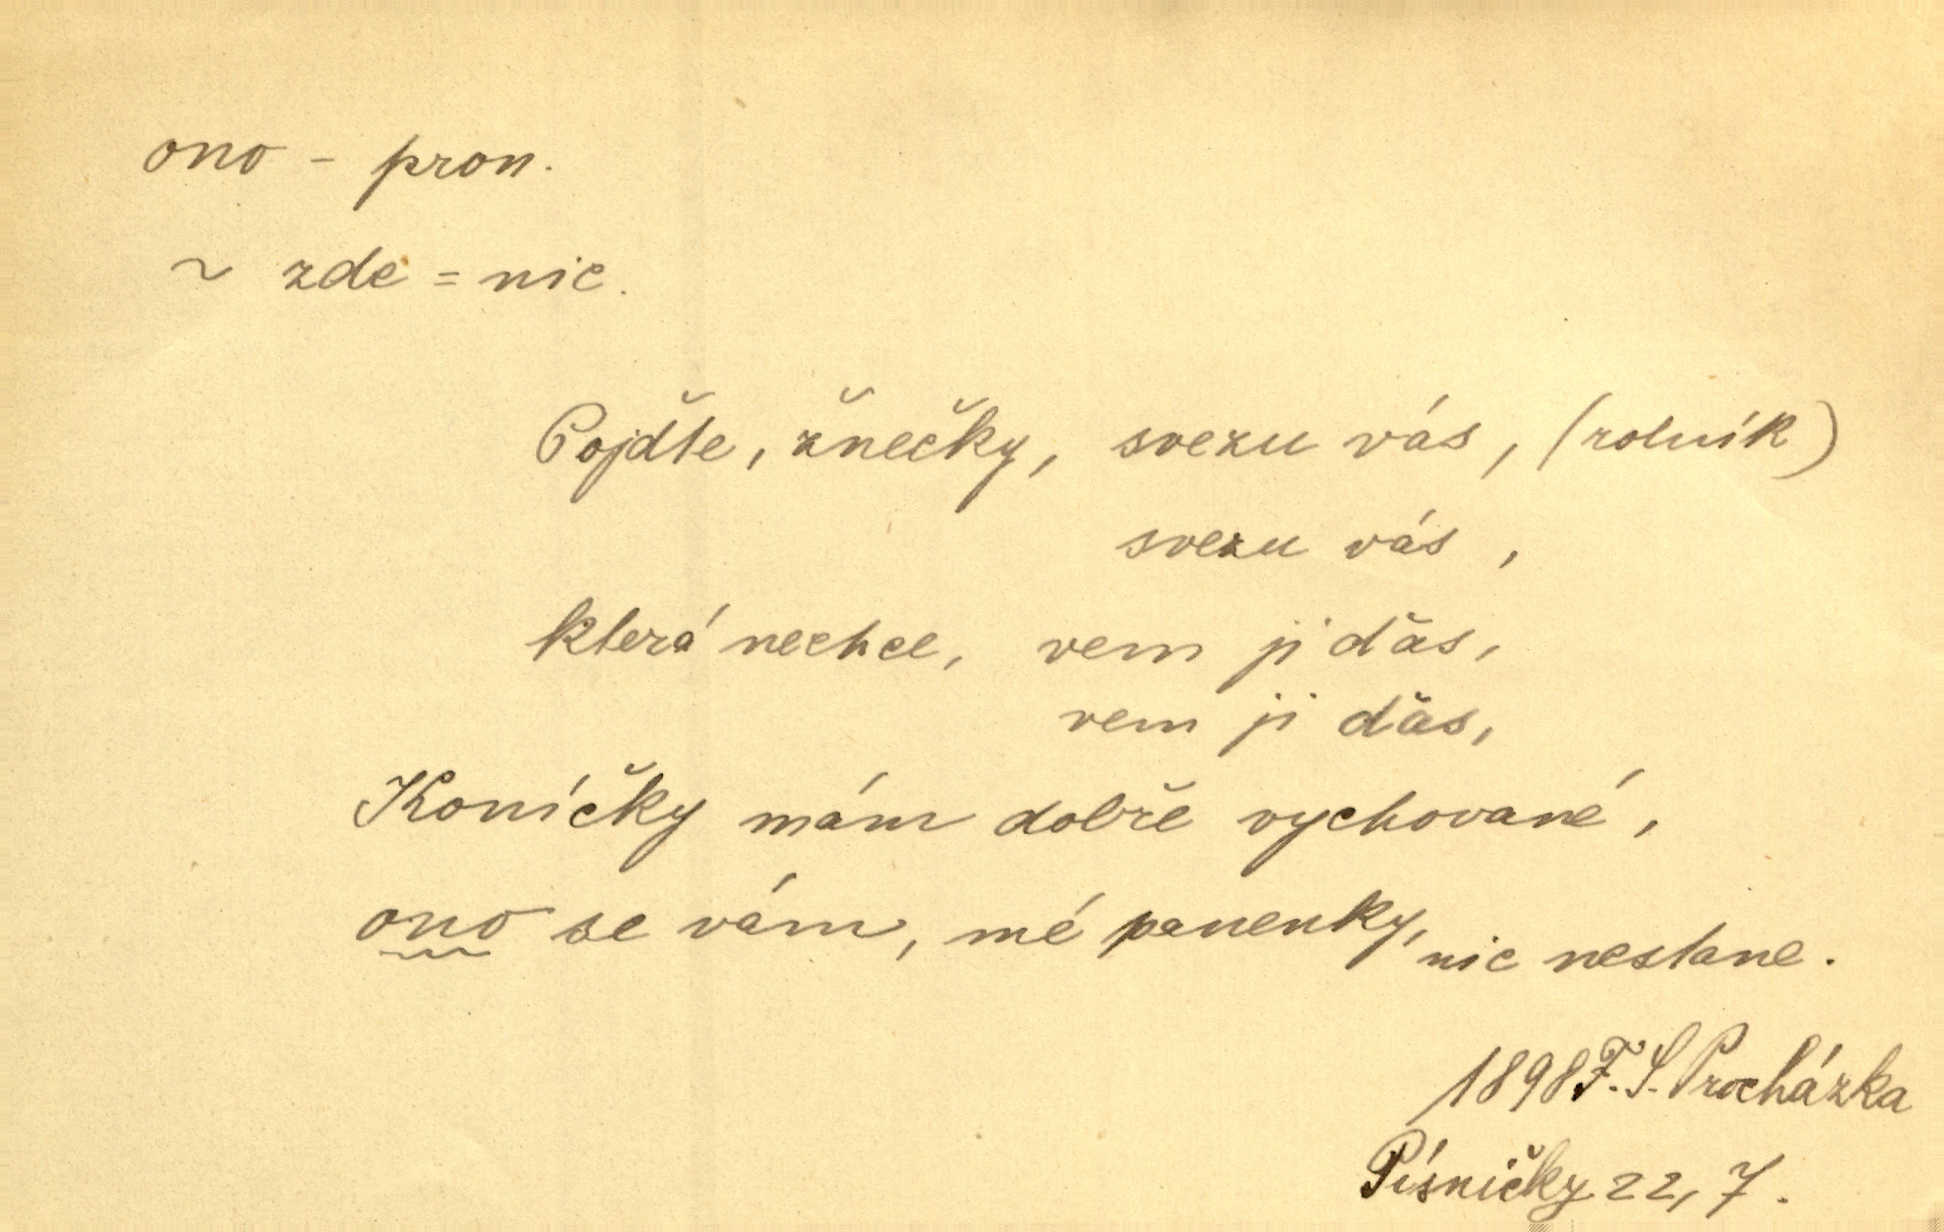 ono - pron.
~ zde = nic.
Pojďte, žnečky, svezu vás, (rolník)
svezu vás,
která nechce, vem ji ďas,
vem ji ďas,
Koníčky mám dobře vychované,
ono se vám, mé panenky, nic nestane.
1898 F. S. Procházka
Písničky 22, 7.